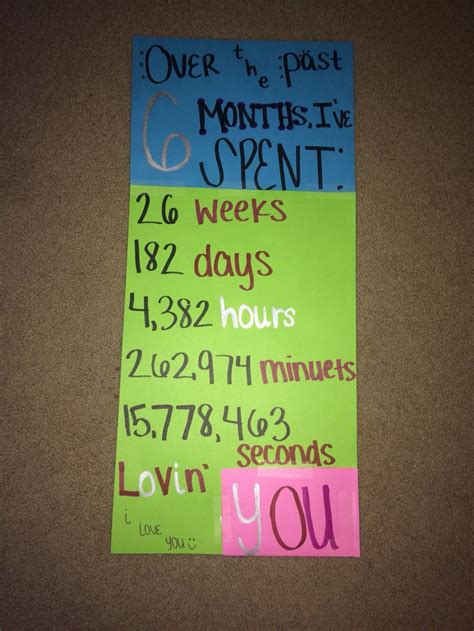 :OVER the päst
6 MONTHS, I've
SPENT:
26 weeks
182 days
4,382 hours
262,974 minuets
15,778,463
seconds
Lovin' YOU
i
LOVE
YOU :)